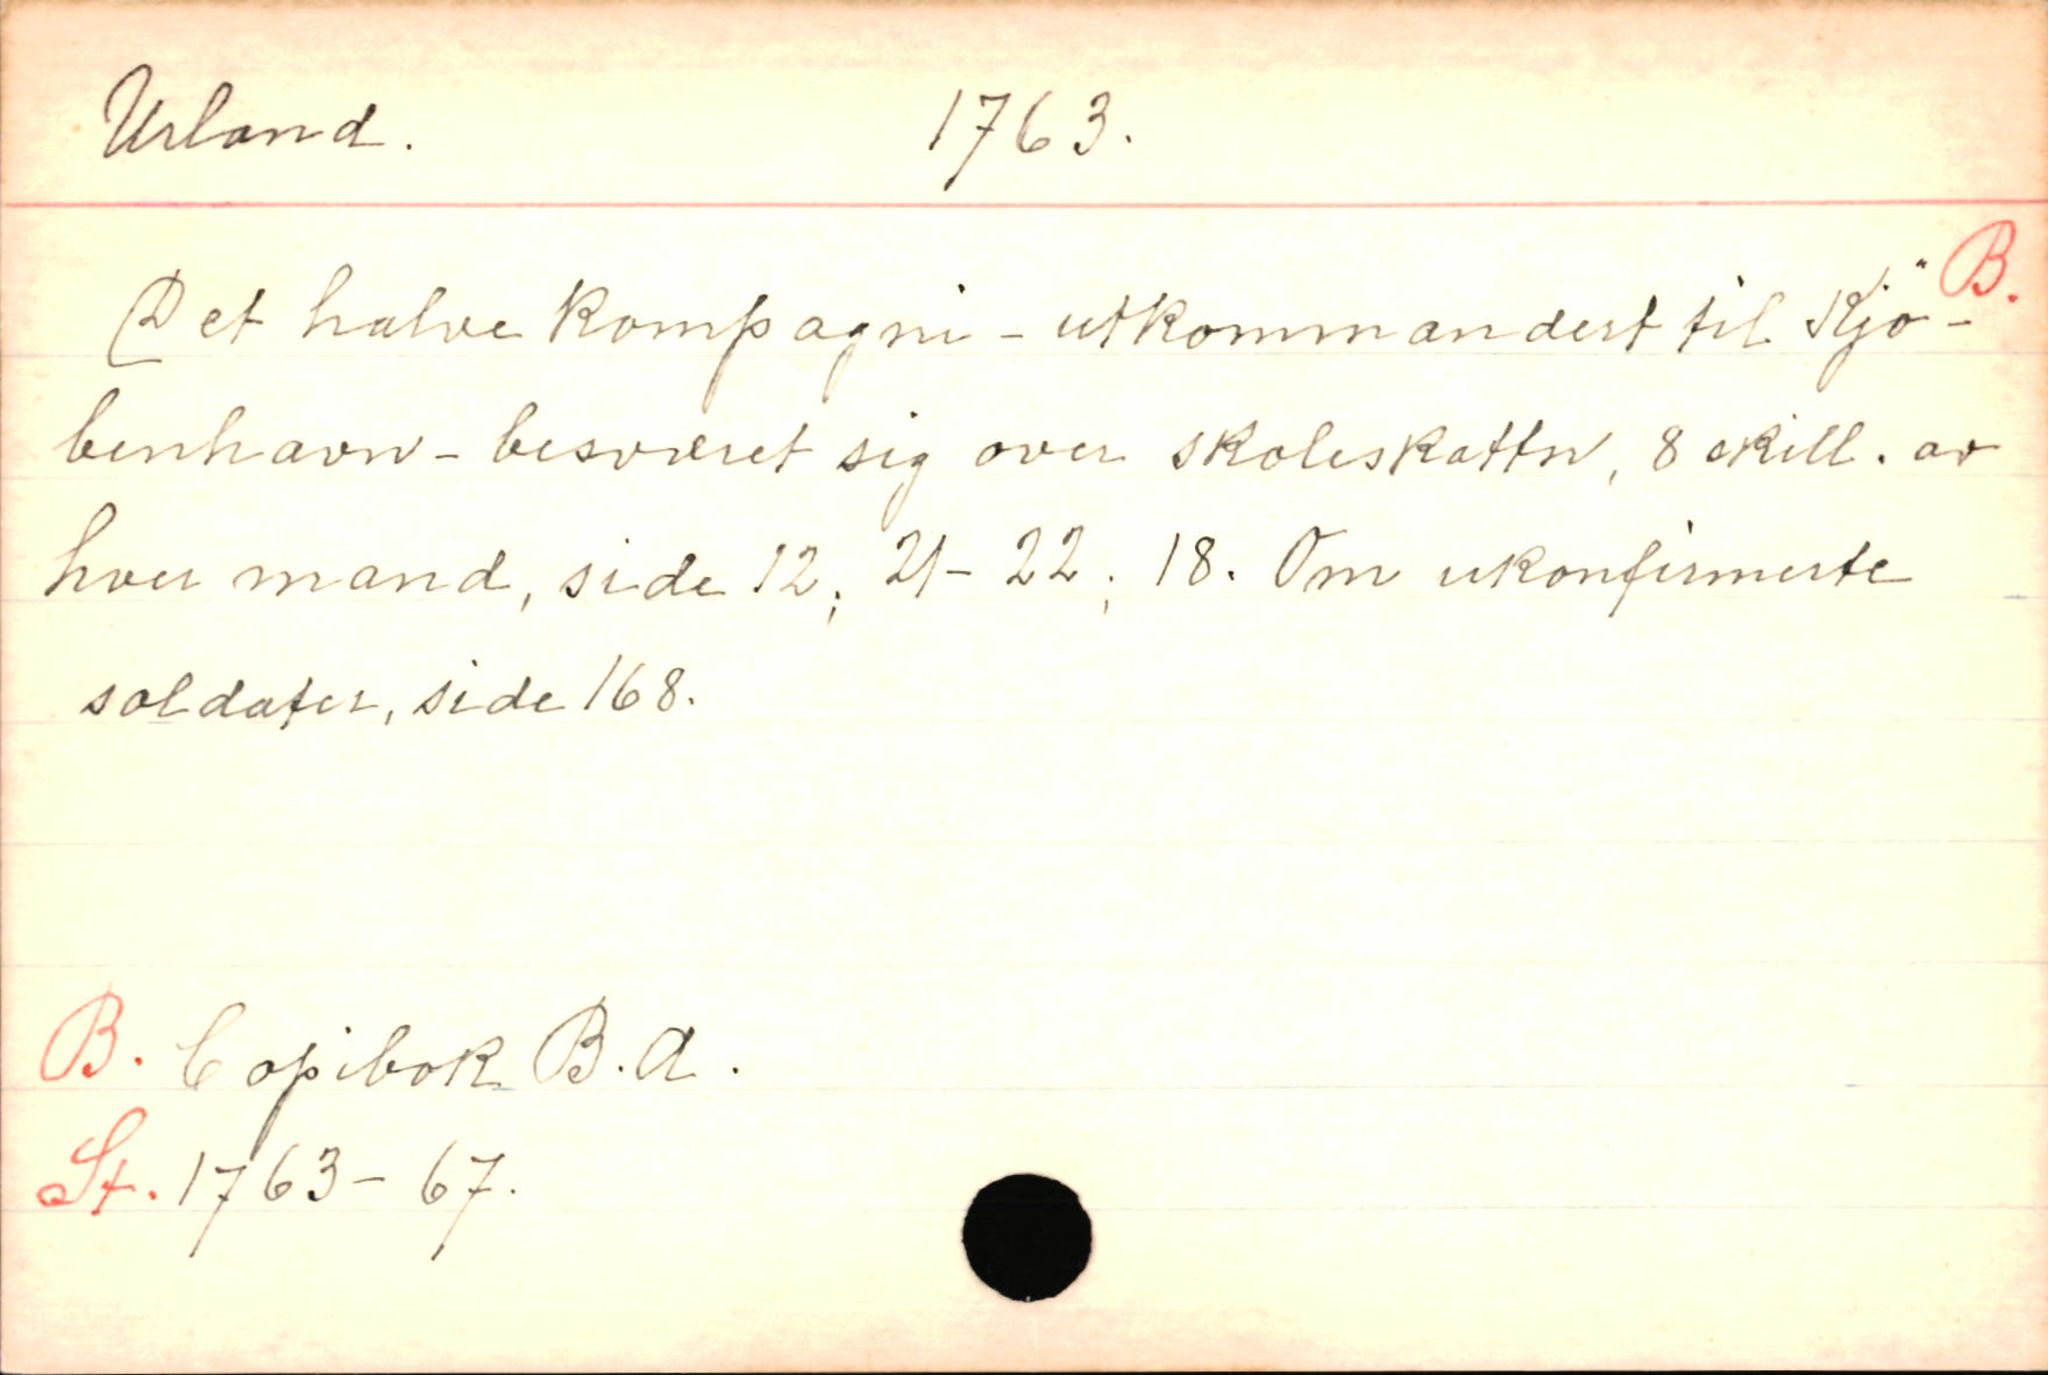 Urland. 1763.
B.
Det halve kompagni - utkommandert til Kjö-
benhavn - besværet sig over skoleskatten, 8 skill. av
hver mand, side 12; 21-22; 18. Om ukonfirmerte
soldater, side 168.
B. Copibok B.A.
St. 1763-67.